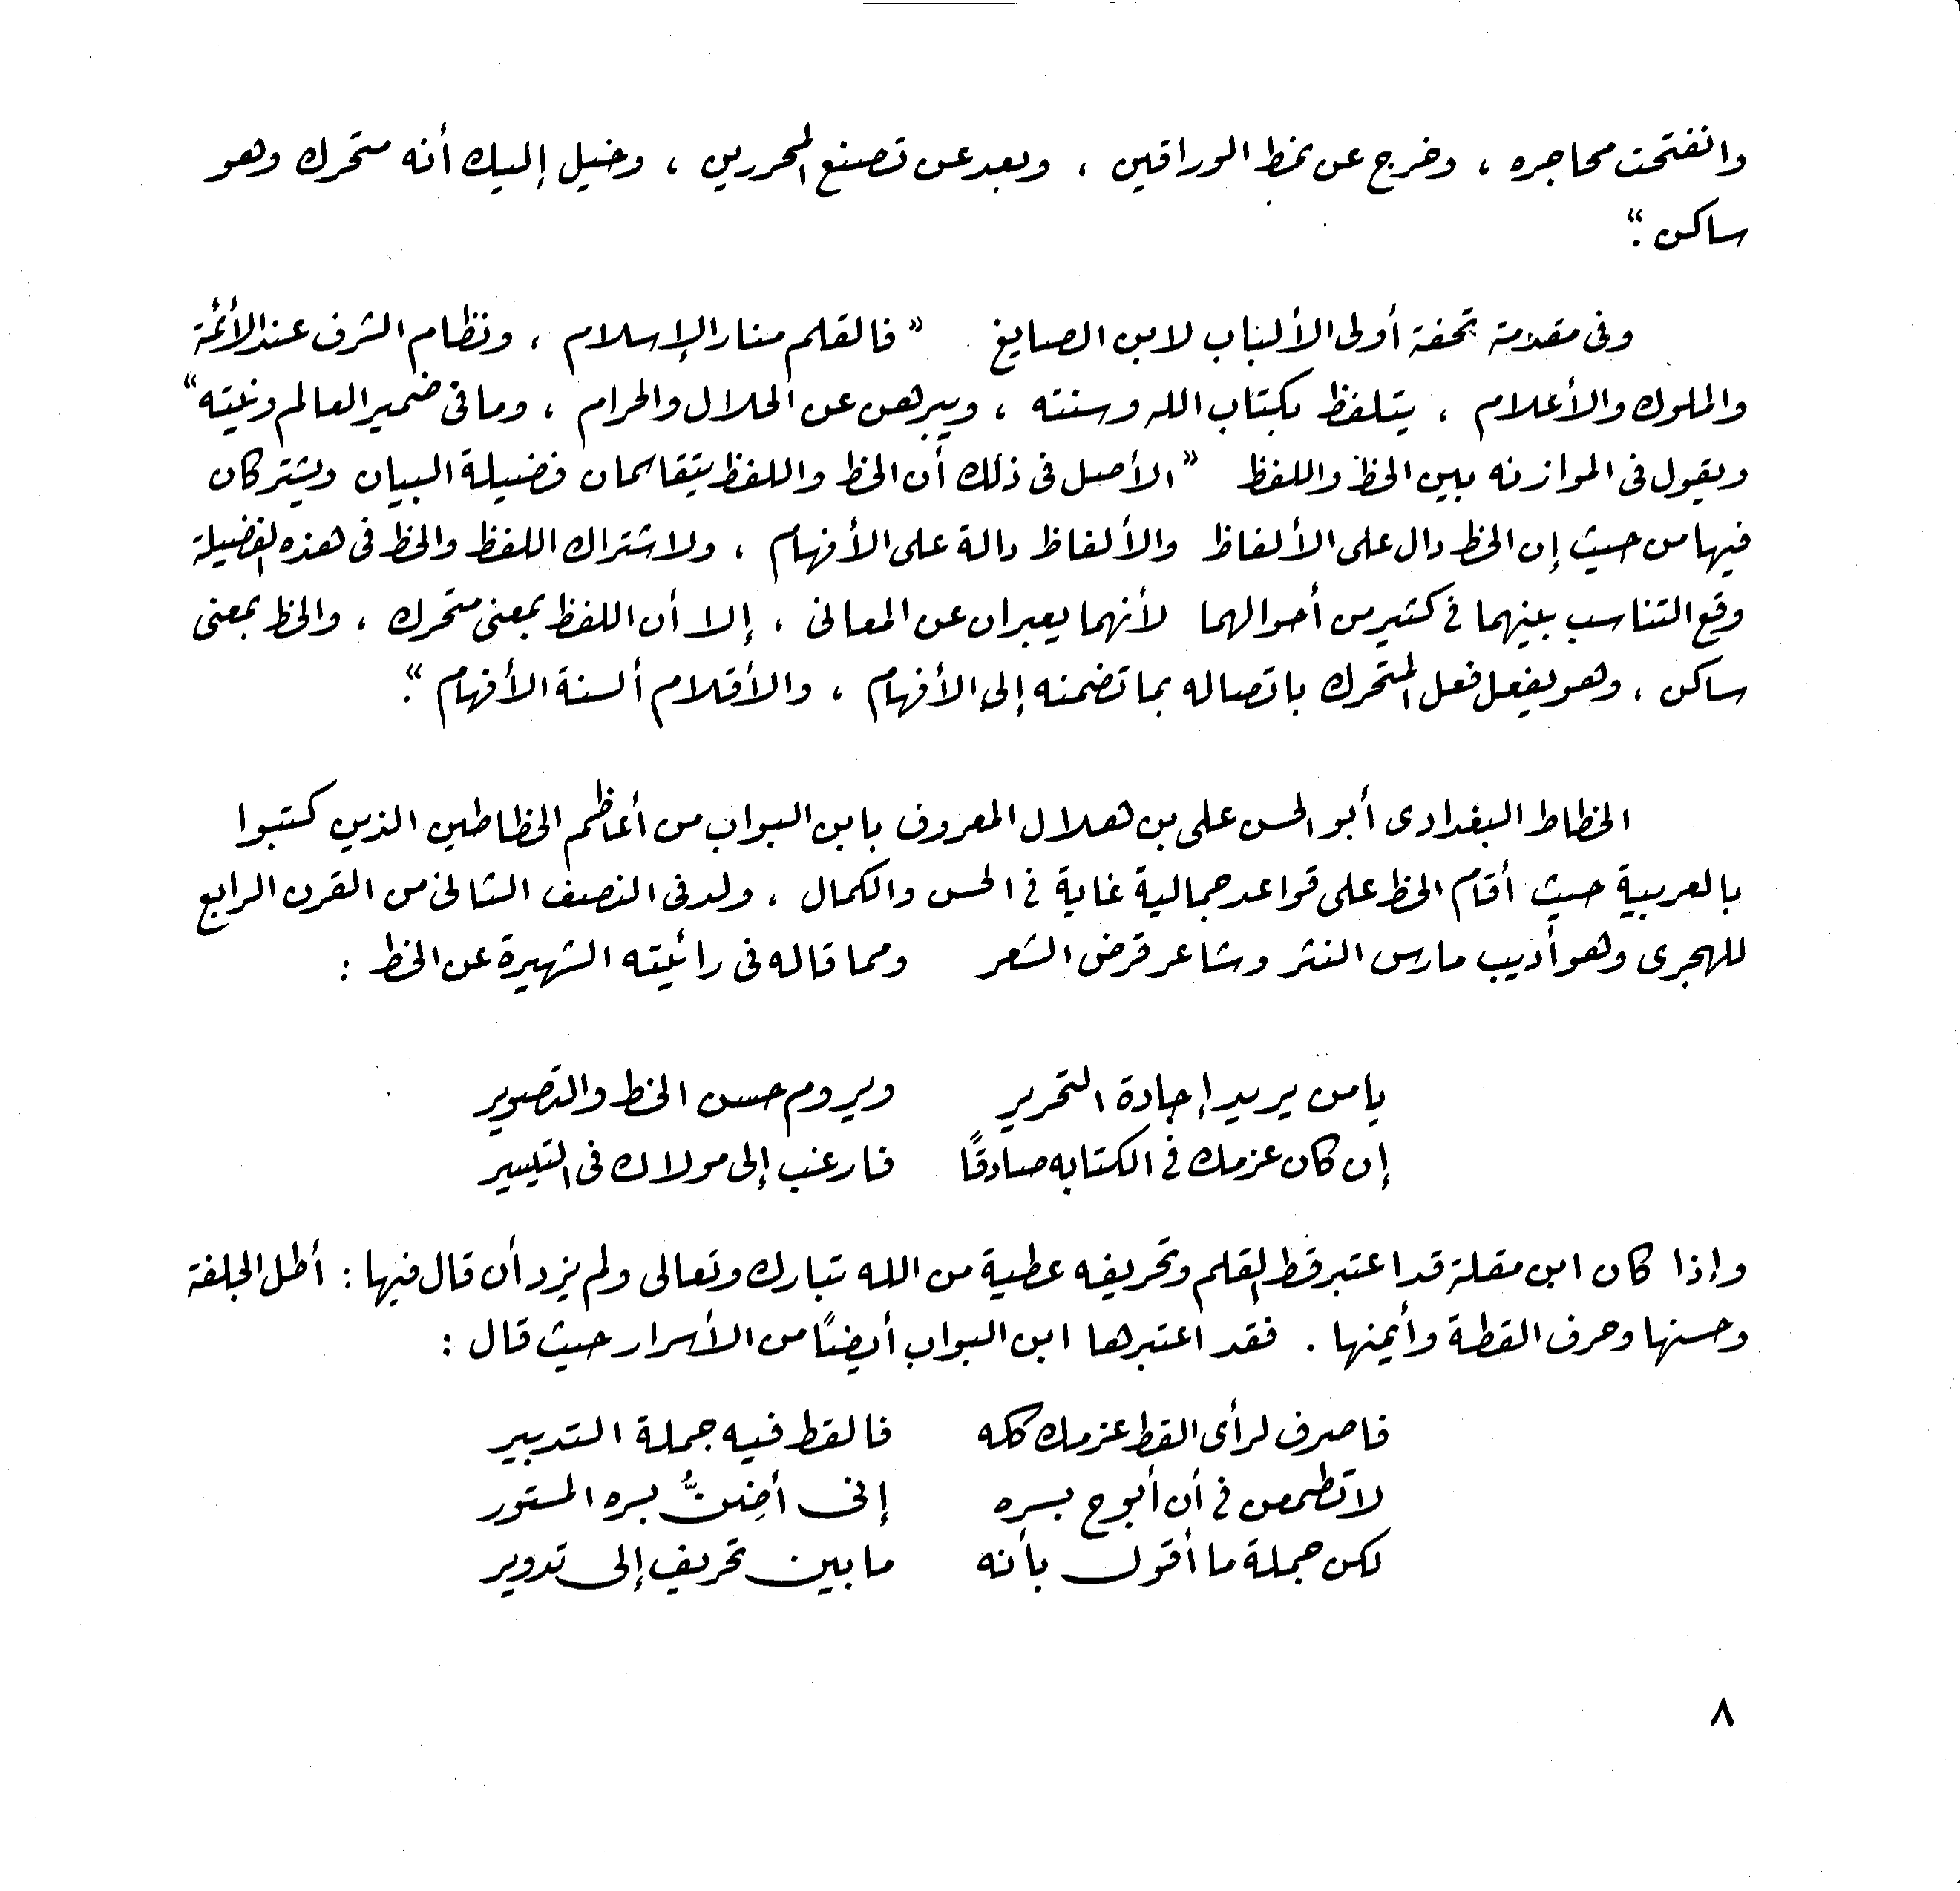 وانفتحت محاجره ، وخرج عن نمط الوراقين ، وبعد عن تصنع المحررين ، وخيل إليك أنه متحرك وهو
ساكن ."
وفى مقدمة تحفة أولى الألباب لابن الصايغ "فالقلم منار الإسلام ، ونظام الشرف عند الأئمة
والملوك والأعلام ، يتلفظ بكتاب الله وسنته ، ويبرهن عن الحلال والحرام ، وما فى ضمير العالم ونيته"
ويقول فى الموازنه بين الخط واللفظ "الأصل فى ذلك أن الخط واللفظ يتقاسمان فضيلة البيان ويشتركان
فيها من حيث إن الخط دال على الألفاظ والألفاظ دالة على الأفهام ، ولاشتراك اللفظ والخط فى هذه الفضيلة
وقع التناسب بينهما فى كثير من أحوالهما لأنهما يعبران عن المعانى ، إلا أن اللفظ بمعنى متحرك ، والخط بمعنى
ساكن ، وهو يفعل فعل المتحرك باتصاله بما تضمنه إلى الأفهام ، والأقلام ألسنة الأفهام ."
الخطاط البغدادى أبو الحسن على بن هلال المعروف بابن البواب من أعاظم الخطاطين الذين كتبوا
بالعربية حيث أقام الخط على قواعد جمالية غاية فى الحسن والكمال ، ولد فى النصف الثانى من القرن الرابع
للهجرى وهو أديب مارس النثر وشاعر قرض الشعر ومما قاله فى رائيته الشهيرة عن الخط :
يا من يريد إجادة التحرير ويروم حسن الخط والتصوير
إن كان عزمك فى الكتابه صادقًا فارغب إلى مولاك فى التيسير
وإذا كان ابن مقلة قد اعتبر قط القلم وتحريفه عطية من الله تبارك وتعالى ولم يزد أن قال فيها : أطل الجلفة
وحسنها وحرف القطة وأيمنها . فقد اعتبرها ابن البواب أيضًا من الأسرار حيث قال :
فاصرف لرأى القط عزمك كله فالقط فيه جملة التدبير
لا تطمعن فى أن أبوح بسره إنى أضِنُّ بسره المستور
لكن جملة ما أقول بأنه ما بين تحريف إلى تدوير
٨